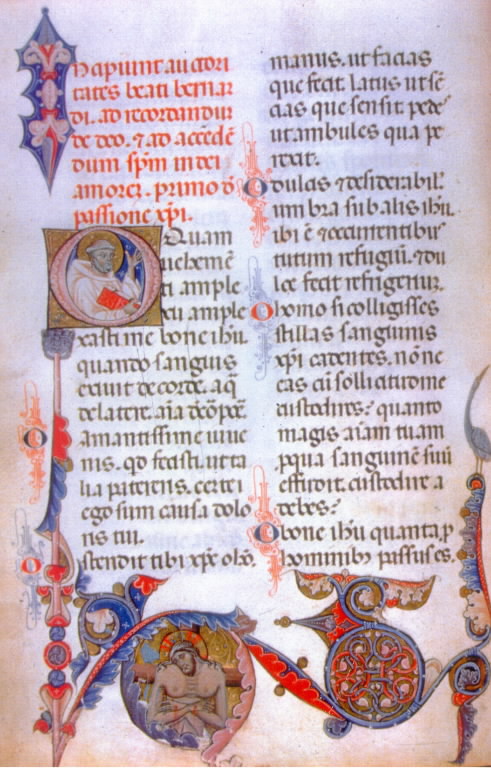 Incipiunt auctori
tates beati bernar
di. ad recordandum
de deo. & ad accedē
dum spm in dei
amorē. primo d̄
passione xpi.
O Quam
uehemē
ti ample
xu ample
xasti me bone ihu
quando sanguis
exiuit de corde. aq̄
de latere. aīa
amantissime iuue
nis. qd fecisti ut ta
lia patereris. certe
ego sum causa dolo
ris tui.
Ostendit tibi xpe
manus. ut facias
que fecit. latus ut sē
cias que sensit. pede
ut ambules qua pe
rexit.
O dulcis & desiderabil'
umbra sub alis ihu
ibi ē & occurrentibus
tutum refugiū. & du
lce fecit
O homo si colligisses
stillas sanguinis
xpi cadentes. nōne
eas cū sollicitudine
custodires? quanto
magis aīam tuam
p qua sanguinē suū
effudit. custodire
debes?
O bone ihu quanta p
hominibz passus es.